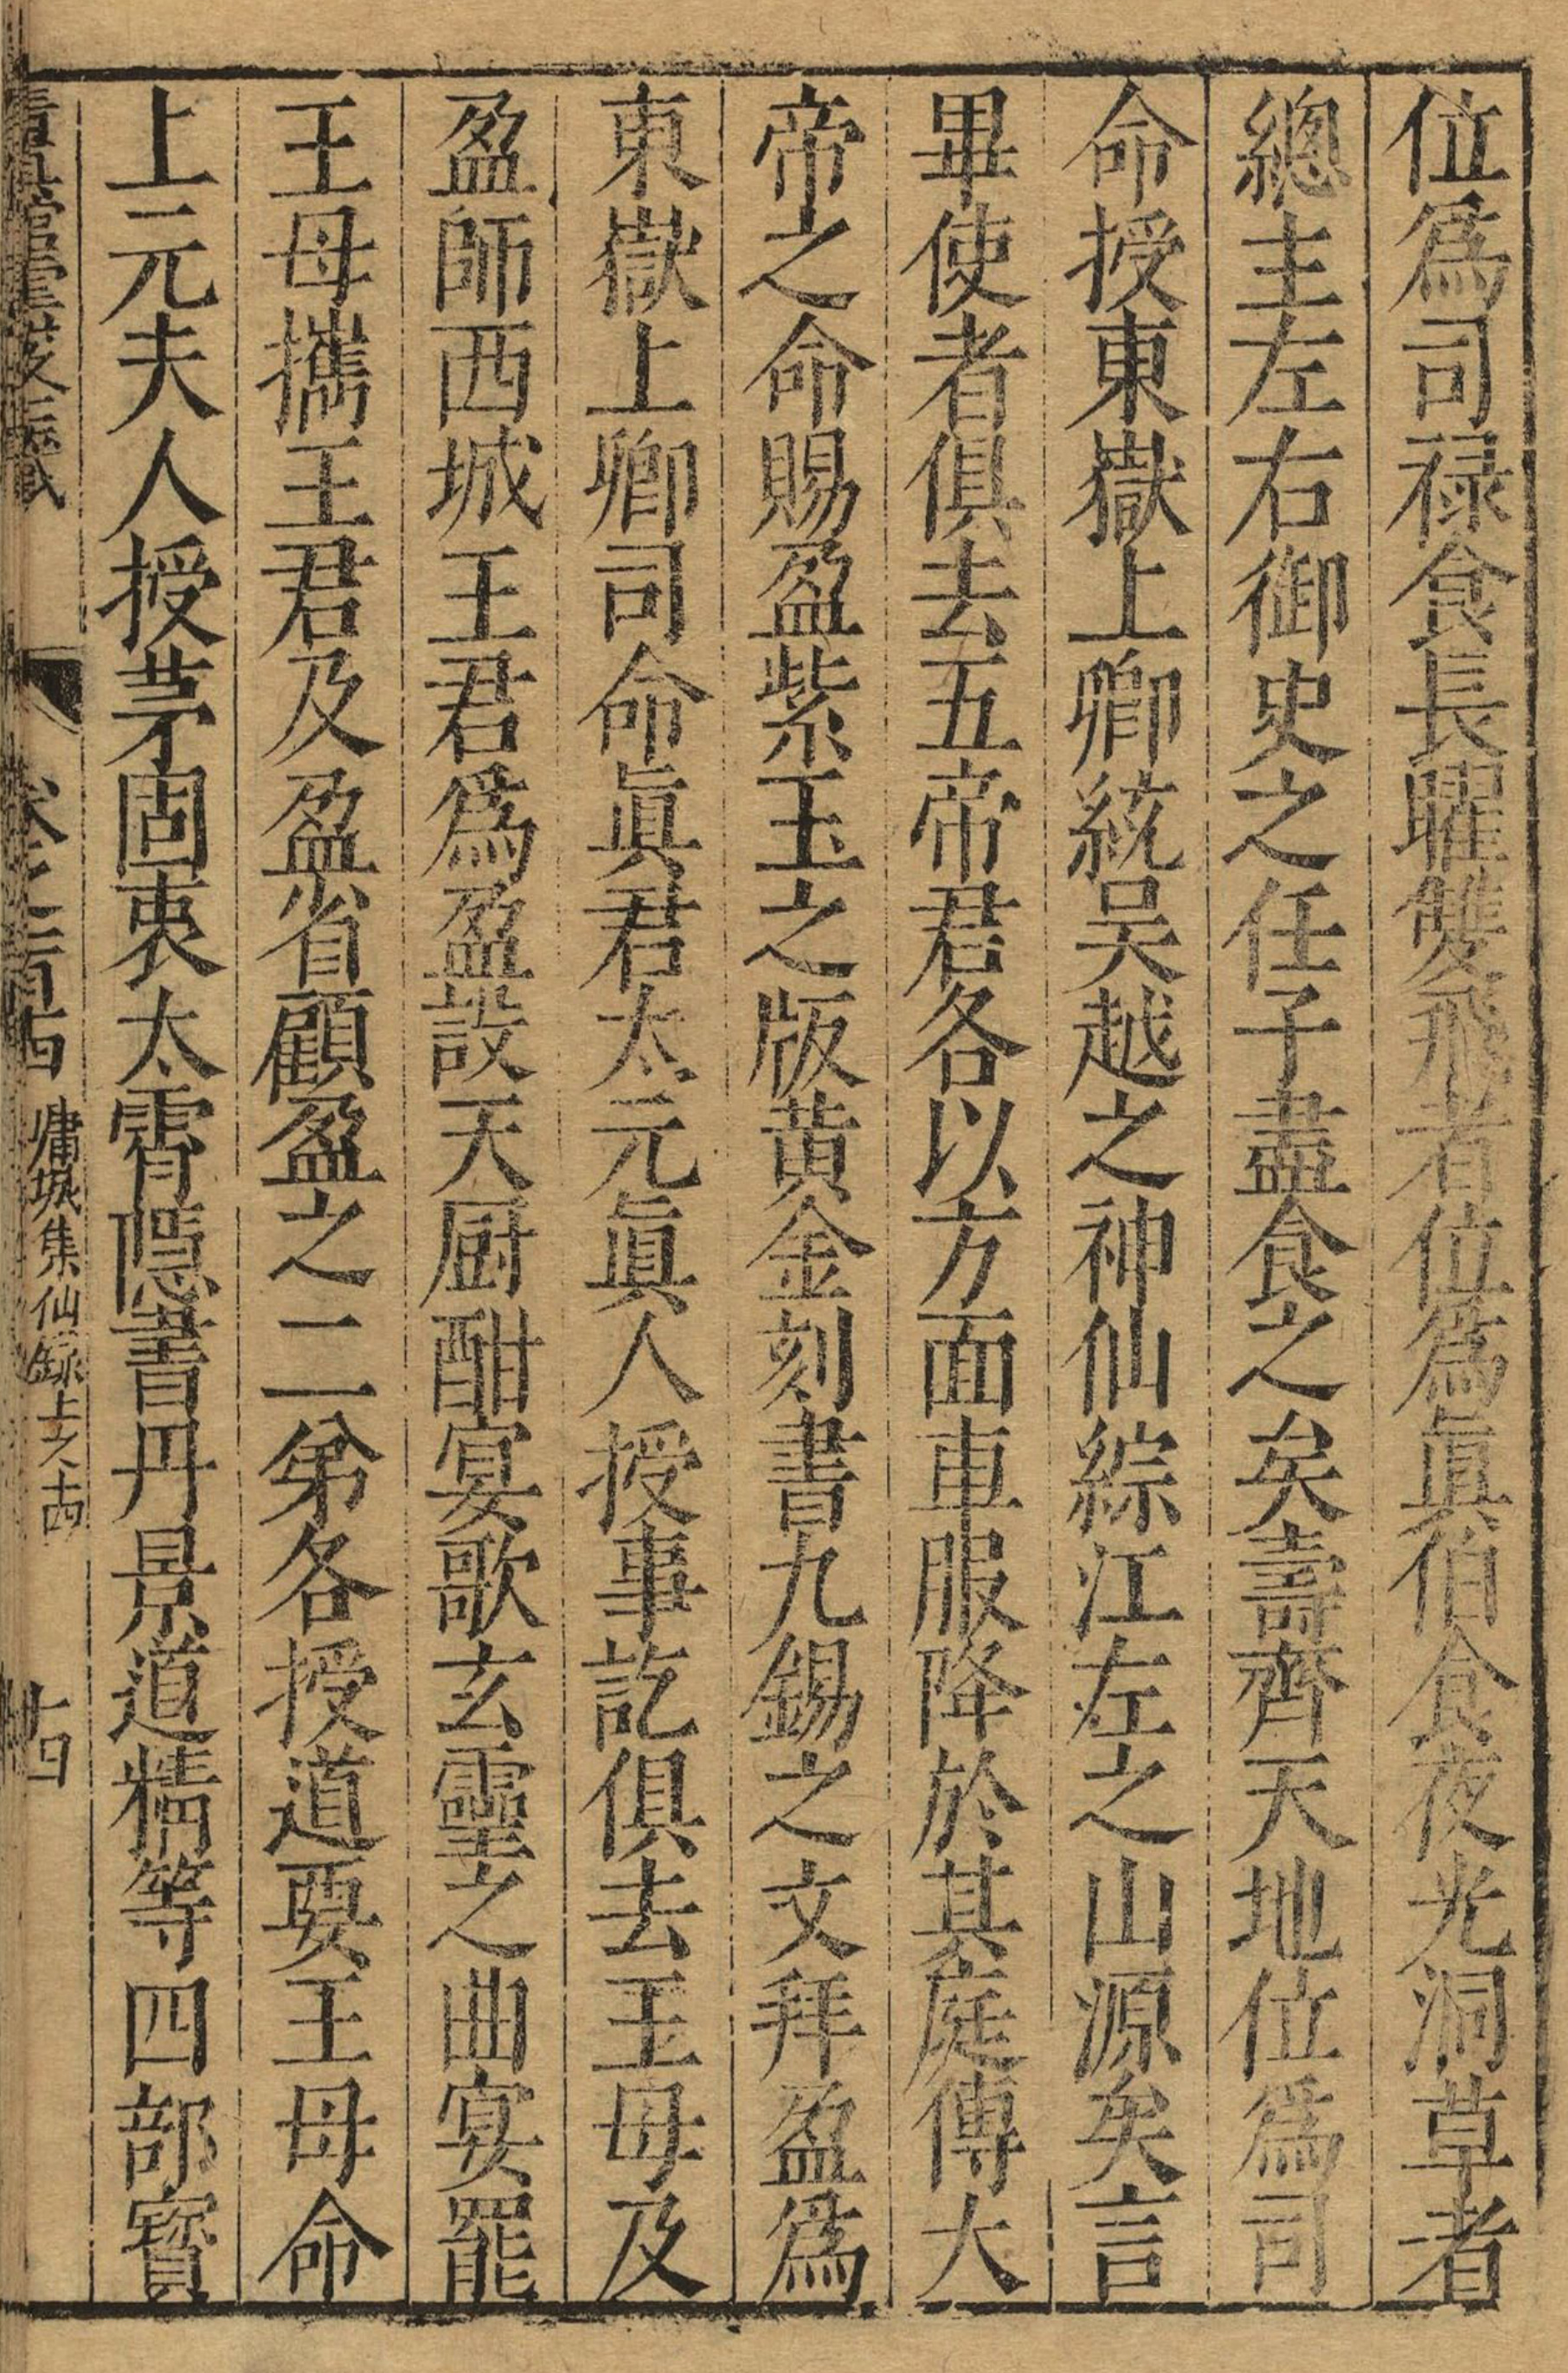 位爲司禄食長曜雙飛者位爲眞伯食夜光洞草者
總主左右御史之任子盡食之矣壽齊天地位爲司
命授東嶽上卿統吴越之神仙綜江左之山源矣言
畢使者俱去五帝君各以方面車服降於其庭傳大
帝之命賜盈紫玉之版黄金刻書九錫之文拜盈爲
東嶽上卿司命眞君太元眞人授事訖俱去王母及
盈師西城王君爲盈設天厨酣宴歌玄靈之曲宴罷
王母攜王君及盈省顧盈之二弟各授道要王母命
上元夫人授茅固衷太霄隱書丹景道精等四部寳
清眞館雲笈七籤 卷之一百十四 墉城集仙錄上之十四 十四